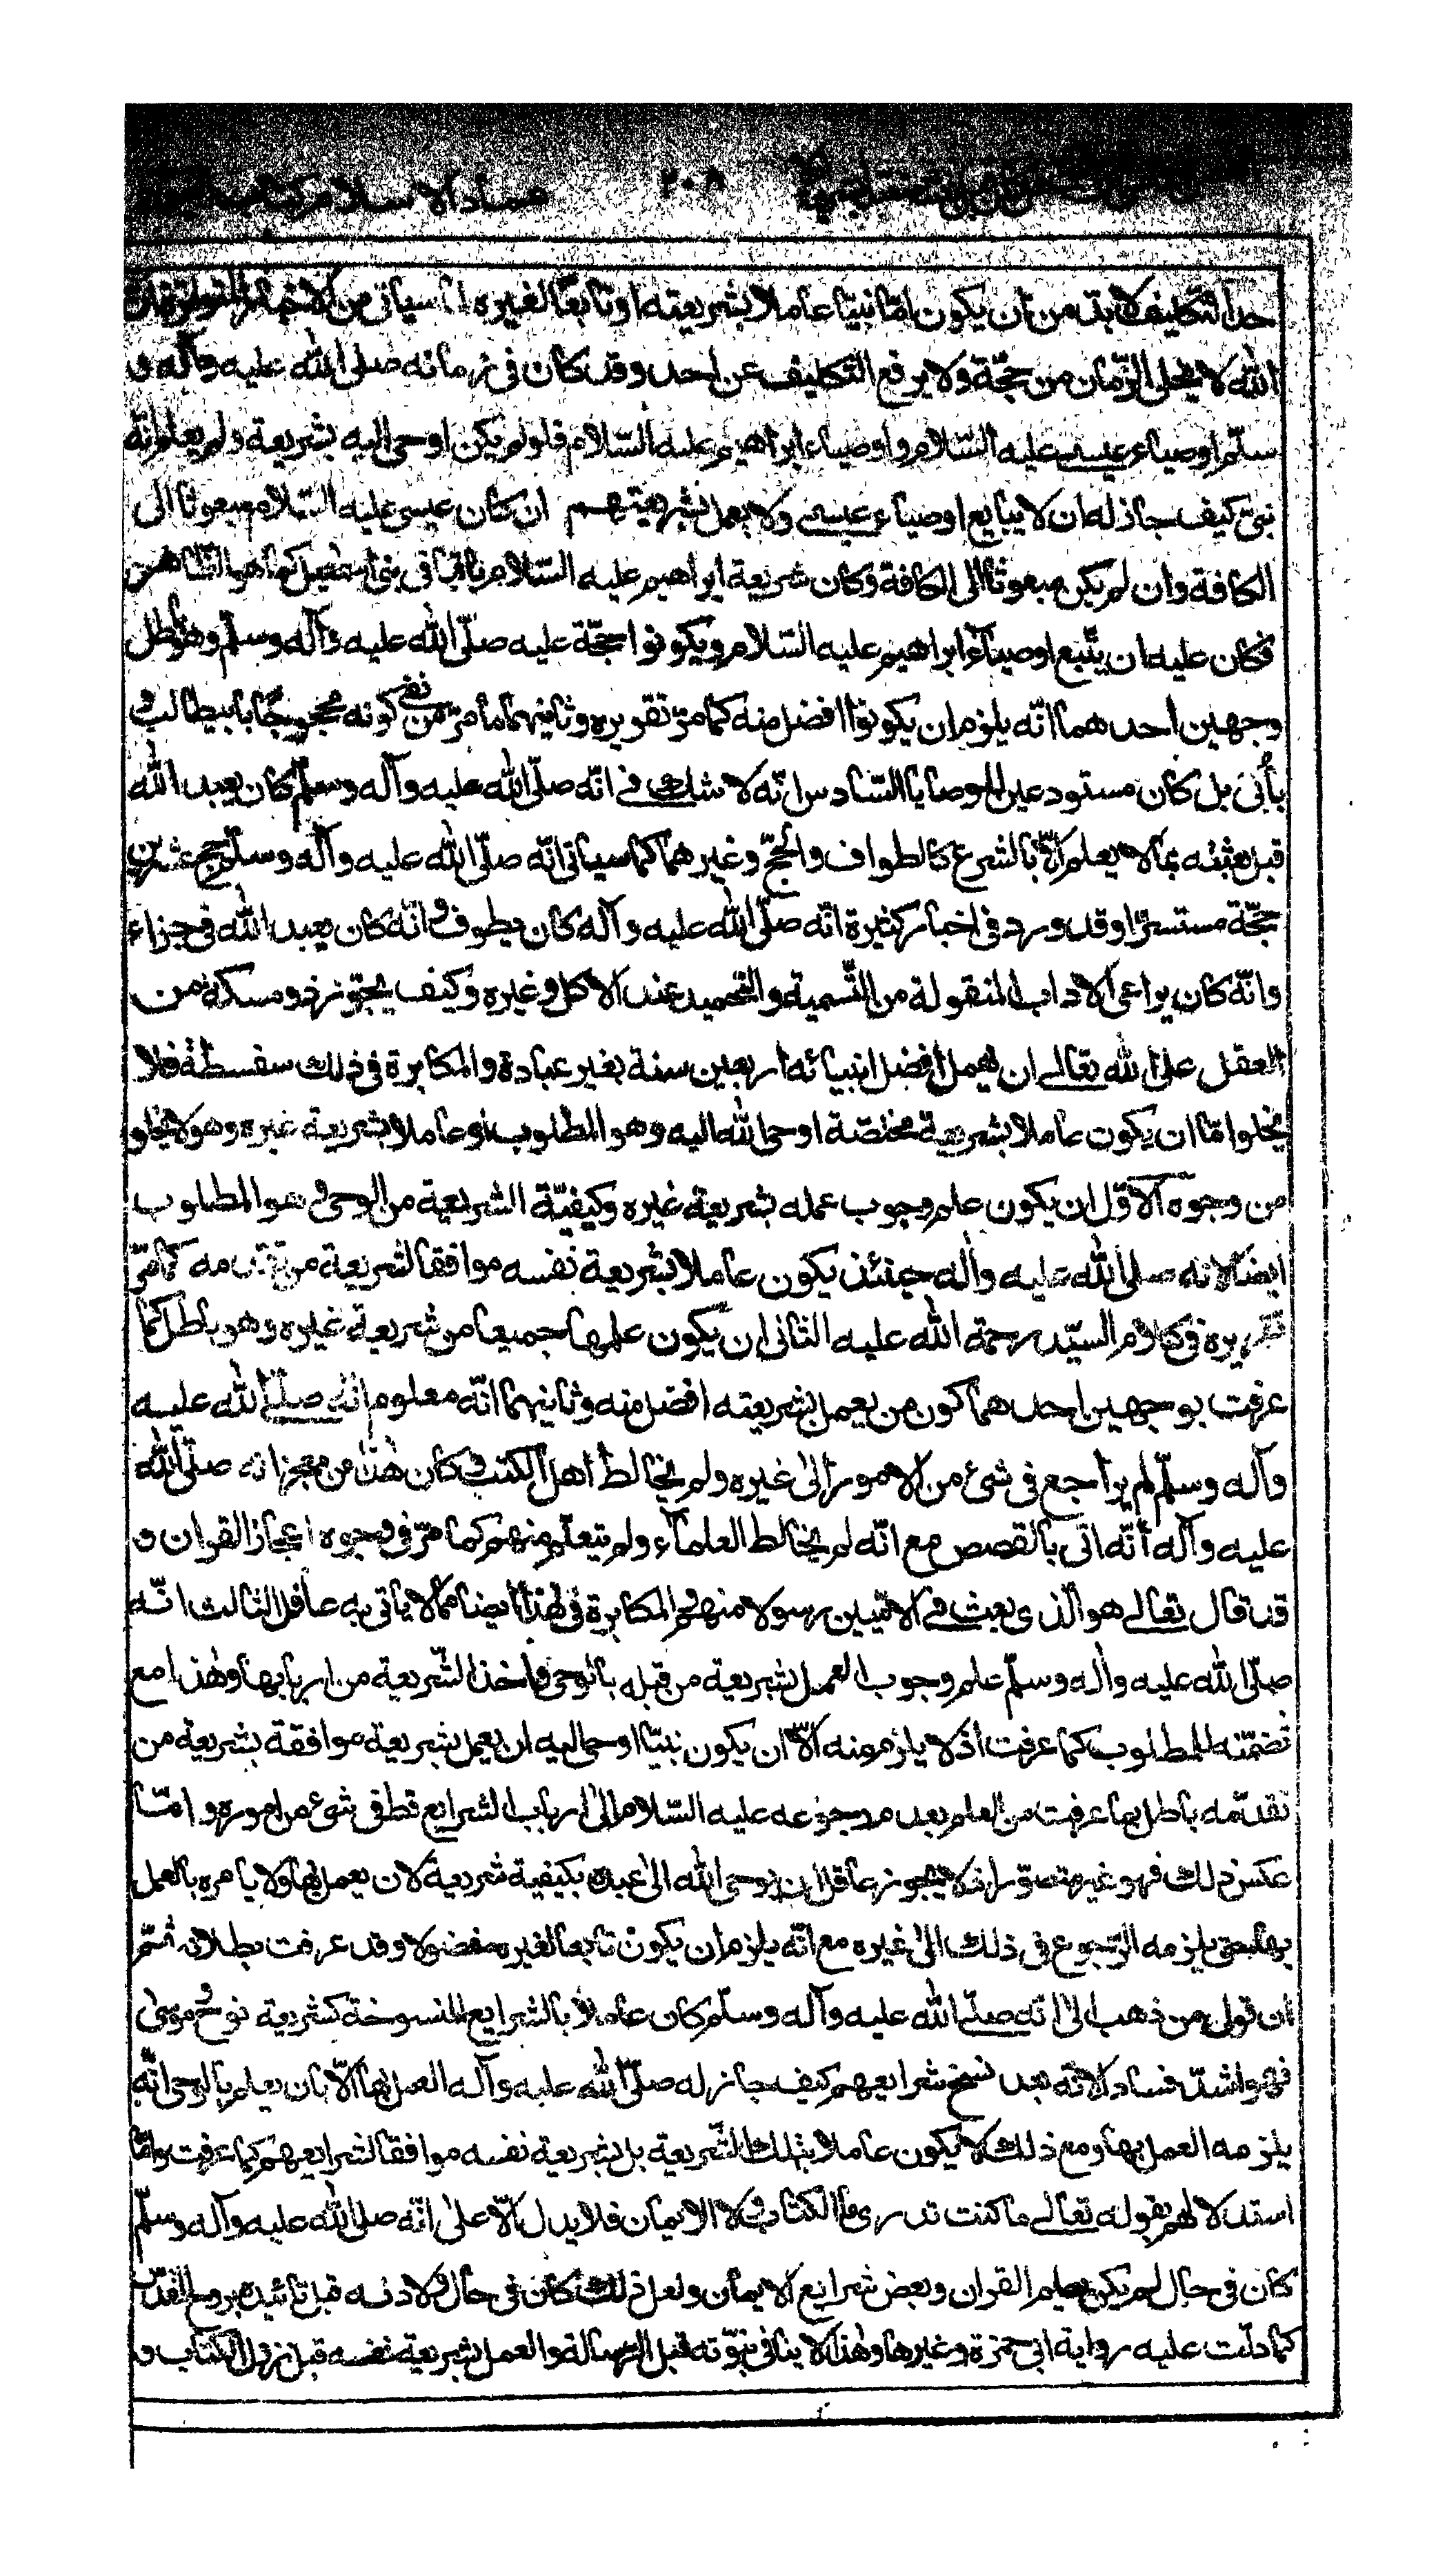 عماد الاسلام كتاب ٢٠٨
حد التكليف لا بد من ان يكون امّا نبيّا عاملا بشريعته او تابعًا لغيره لما سياتى من الاخبار المتواترة ان
الله لا يخلى الزّمان من حجّة ولا يرفع التكليف عن احد وقد كان فى زمانه صلى الله عليه وآله و
سلّم اوصياء عيسى عليه السّلام واوصياء ابراهيم عليه السّلام فلو لم يكن اوحى اليه بشريعة ولم يعلم انّه
نبىّ كيف جاز له ان لا يبايع اوصياء عيسى ولا يعمل بشريعتهم ان كان عيسى عليه السّلام مبعوثا الى
الكافة وان لم يكن مبعوثا الى الكافة وكان شريعة ابراهيم عليه السّلام باقيا فى بنى اسمٰعيل كما هو الظّاهر
فكان عليه ان يتّبع اوصياء ابراهيم عليه السّلام ويكونوا حجّة عليه صلّى الله عليه وآله وسلّم وهو باطل
وجهين احدهما انّه يلزم ان يكونوا افضل منه كما مرّ تقريره وثانيهما ما مرّ من نفى كونه محجوجًا بابيطالب و
بأبى بل كان مستودعين للوصايا السّادس انّه لا شك فى انّه صلّى الله عليه وآله وسلّم كان يعبد الله
قبل بعثته بما لا يعلم الّا بالشرع كالطواف والحجّ وغيرهما كما سياتى انّه صلّى الله عليه وآله وسلّم حج عشرين
حجّة مستسرّا وقد ورد فى اخبار كثيرة انّه صلّى الله عليه وآله كان يطوف وانّه كان يعبد الله فى حراء
وانّه كان يراعى الاداب المنقولة من التّسمية والتحميد عند الاكل وغيره وكيف يجوّز ذو مسكة من
العقل على الله تعالى ان يهمل افضل انبيائه اربعين سنة بغير عبادة والمكابرة فى ذلك سفسطة فلا
يخلوا مّا ان يكون عاملا بشريعة مختصّة اوحى الله اليه وهو المطلوب او عاملا بشريعة غيره وهو لا يخلو
من وجوه الاوّل ان يكون علم وجوب عمله بشريعة غيره وكيفيّة الشريعة من الوحى وهو المطلوب
ايضا لانه صلى الله عليه وآله حينئذ يكون عاملا بشريعة نفسه موافقا لشريعة من تقدمه كما مرّ
تقريره فى كلام السيّد رحمة الله عليه الثانى ان يكون علمها جميعا من شريعة غيره وهو باطل كما
عرفت بوجهين احدهما كون من يعمل بشريعته افضل منه وثانيهما انّه معلوم انّه صلّى الله عليه
وآله وسلّم لم يراجع فى شئ من الامور الى غيره ولم يخالط اهل الكتب وكان هذا من معجزاته صلّى الله
عليه وآله أنّه اتى بالقصص مع انّه لم يخالط العلماء ولم يتعلّم منهم كما مرّ فى وجوه اعجاز القران و
قد قال تعالى هو الّذى بعث فى الاميّين رسولا منهم والمكابرة فى هذا ايضا ممّا لا ياتى به عاقل الثالث انّه
صلّى الله عليه وآله وسلّم علم وجوب العمل بشريعة من قبله بالوحى واخذ الشّريعة من اربابها وهذا مع
تضمّنه للمطلوب كما عرفت اذ لا يلزم منه الّا ان يكون نبيّا اوحى اليه ان يعمل بشريعة موافقة بشريعة من
تقدّمه باطل بما عرفت من العلم بعدم رجوعه عليه السّلام الى ارباب الشرايع قط فى شئ من اموره وامّا
عكس ذلك فهو غير متصوّر اذ لا يجوّز عاقل ان يوحى الله الى عبده بكيفية شريعة لان يعمل بها ولا يامره بالعمل
بها حتى يلزمه الرّجوع فى ذلك الى غيره مع انّه يلزم ان يكون تابعا لغيره مفضولا وقد عرفت بطلانه ثمّ
ان قول من ذهب الى انّه صلّى الله عليه وآله وسلّم كان عاملا بالشرايع المنسوخة كشريعة نوح وموسى
فهو اشدّ فسادا لانّه بعد نسخ شرايعهم كيف جاز له صلّى الله عليه وآله العمل بها الّا بان يعلم بالوحى انّه
يلزمه العمل بها ومع ذلك لا يكون عاملا بتلك الشّريعة بل بشريعة نفسه موافقا لشرايعهم كما عرفت وامّا
استدلالهم بقوله تعالى ما كنت تدرى ما الكتاب ولا الايمان فلا يدل الّا على انّه صلى الله عليه وآله وسلّم
كان فى حال لم يكن يعلم القران وبعض شرايع الايمان ولعل ذلك كان فى حال ولادته قبل تائيده بروح القدس
كما دلّت عليه رواية ابى حمزة وغيرها وهذا لا ينافى نبوّته قبل الرّسالة والعمل بشريعة نفسه قبل نزول الكتاب و